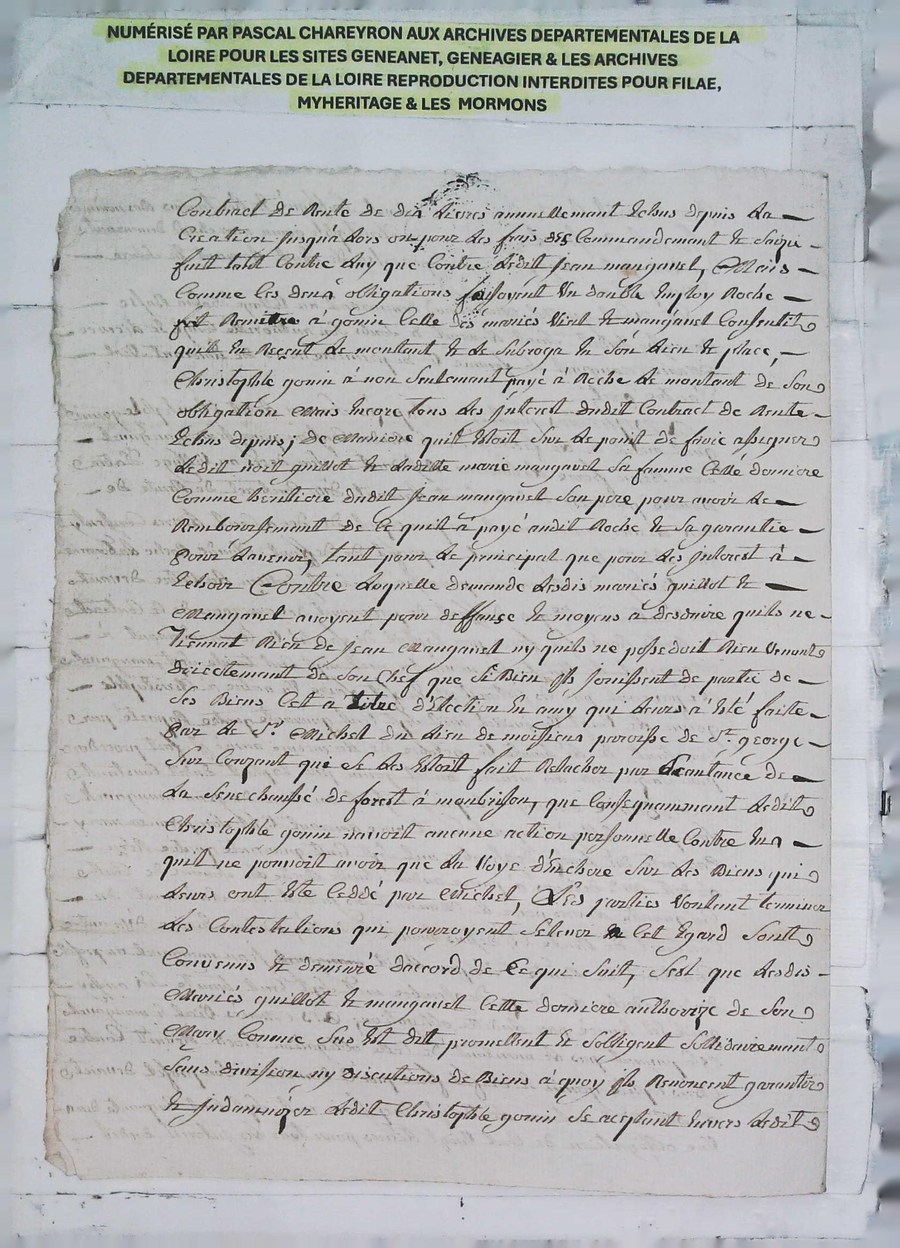 NUMÉRISÉ PAR PASCAL CHAREYRON AUX ARCHIVES DEPARTEMENTALES DE LA
LOIRE POUR LES SITES GENEANET, GENEAGIER & LES ARCHIVES
DEPARTEMENTALES DE LA LOIRE REPRODUCTION INTERDITES POUR FILAE,
MYHERITAGE & LES MORMONS
Contract de Rente de dix livres annuellemant Echus depuis La
Creation jusqu'a Lors on pour Les frais des Commandemant & Saizie
fait tant Contre Luy que Contre Ledit Jean manganel, Mais
Comme les deux obligations faisoyent Un double Employ Roche
fit Remettre à gonin Celle des mariés & manganel Consentit
quil En Reçent Le montant & Le Subroga En Son Lien & place,
Christophle gonin à non Seulemant payé à Roche Le montant de Son
obligation Mais Encore tous Les Jnterest dudit Contract de Rente
Echus depuis; de Maniere quil Etoit Sur Le point de faire assigner
Ledit guillot & Laditte marie manganel Sa famme Cette derniere
Comme heritiere dudit Jean manganel Son pere pour avoir Le
Remboursemant de Ce quil à payé audit Roche & Sa garantie
pour Lavenir, tant pour Le principal que pour Les Jnterest à
Echoir Contre Laquelle demande Lesdis mariés guillot &
Manganel avoyent pour deffance & moyens à desduire quils ne
Tiennent Rien de Jean Manganel ny quils ne possedoit Rien Venant
directemant de Son Chef que Si Bien jls Jouissent de partie de
Ses Biens Cet a titre d'Election En amy qui Leurs à Eté faite
par Le Sr. Michel du Lieu de paroisse de St. george
Sur Couzant qui Se Les Etoit fait Relacher par Scantance de
La Senechaussé de forest à monbrison, que Consequammant Ledit
Christophle gonin navoit aucune action personnelle Contre Eux
quil ne pouvoit avoir que La Voye d'Enchere Sur Les Biens qui
Leurs ont Eté Ceddé par Michel, Les parties Voulant terminer
Les Contestations qui pourroyent Selever à Cet Egard Sont
Convenus & demeuré daccord de Ce qui Suit, Sest que Lesdis
Mariés guillot & manganel Cette derniere authorizé de Son
Mary Comme Sus Est dit promettent & Sobligent Sollidairemant
Sans division ny discutions de Biens à quoy jls Renoncent garantir
& Ledit Christophle gonin Se aceptant Envers Ledit